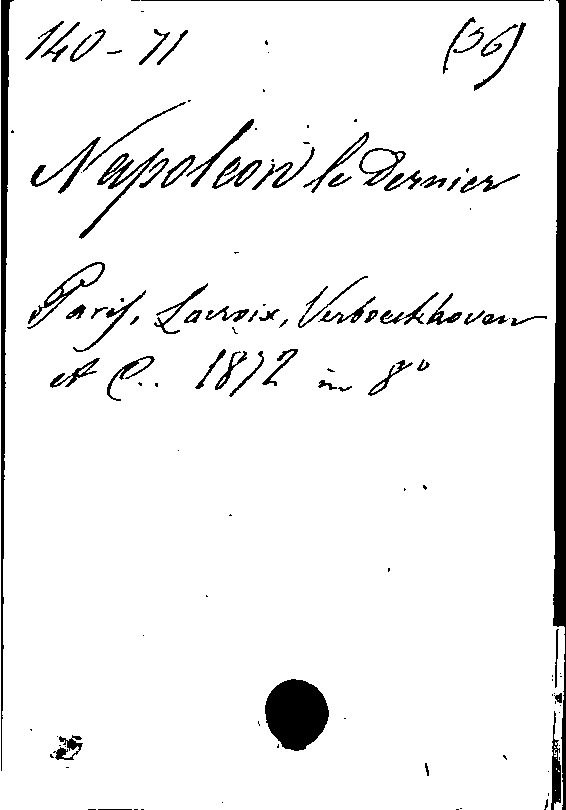 140-71 (36)
Napoleon le Dernier
Paris, Lacroix, Verboeckhoven
et C.. 1872 in 8º